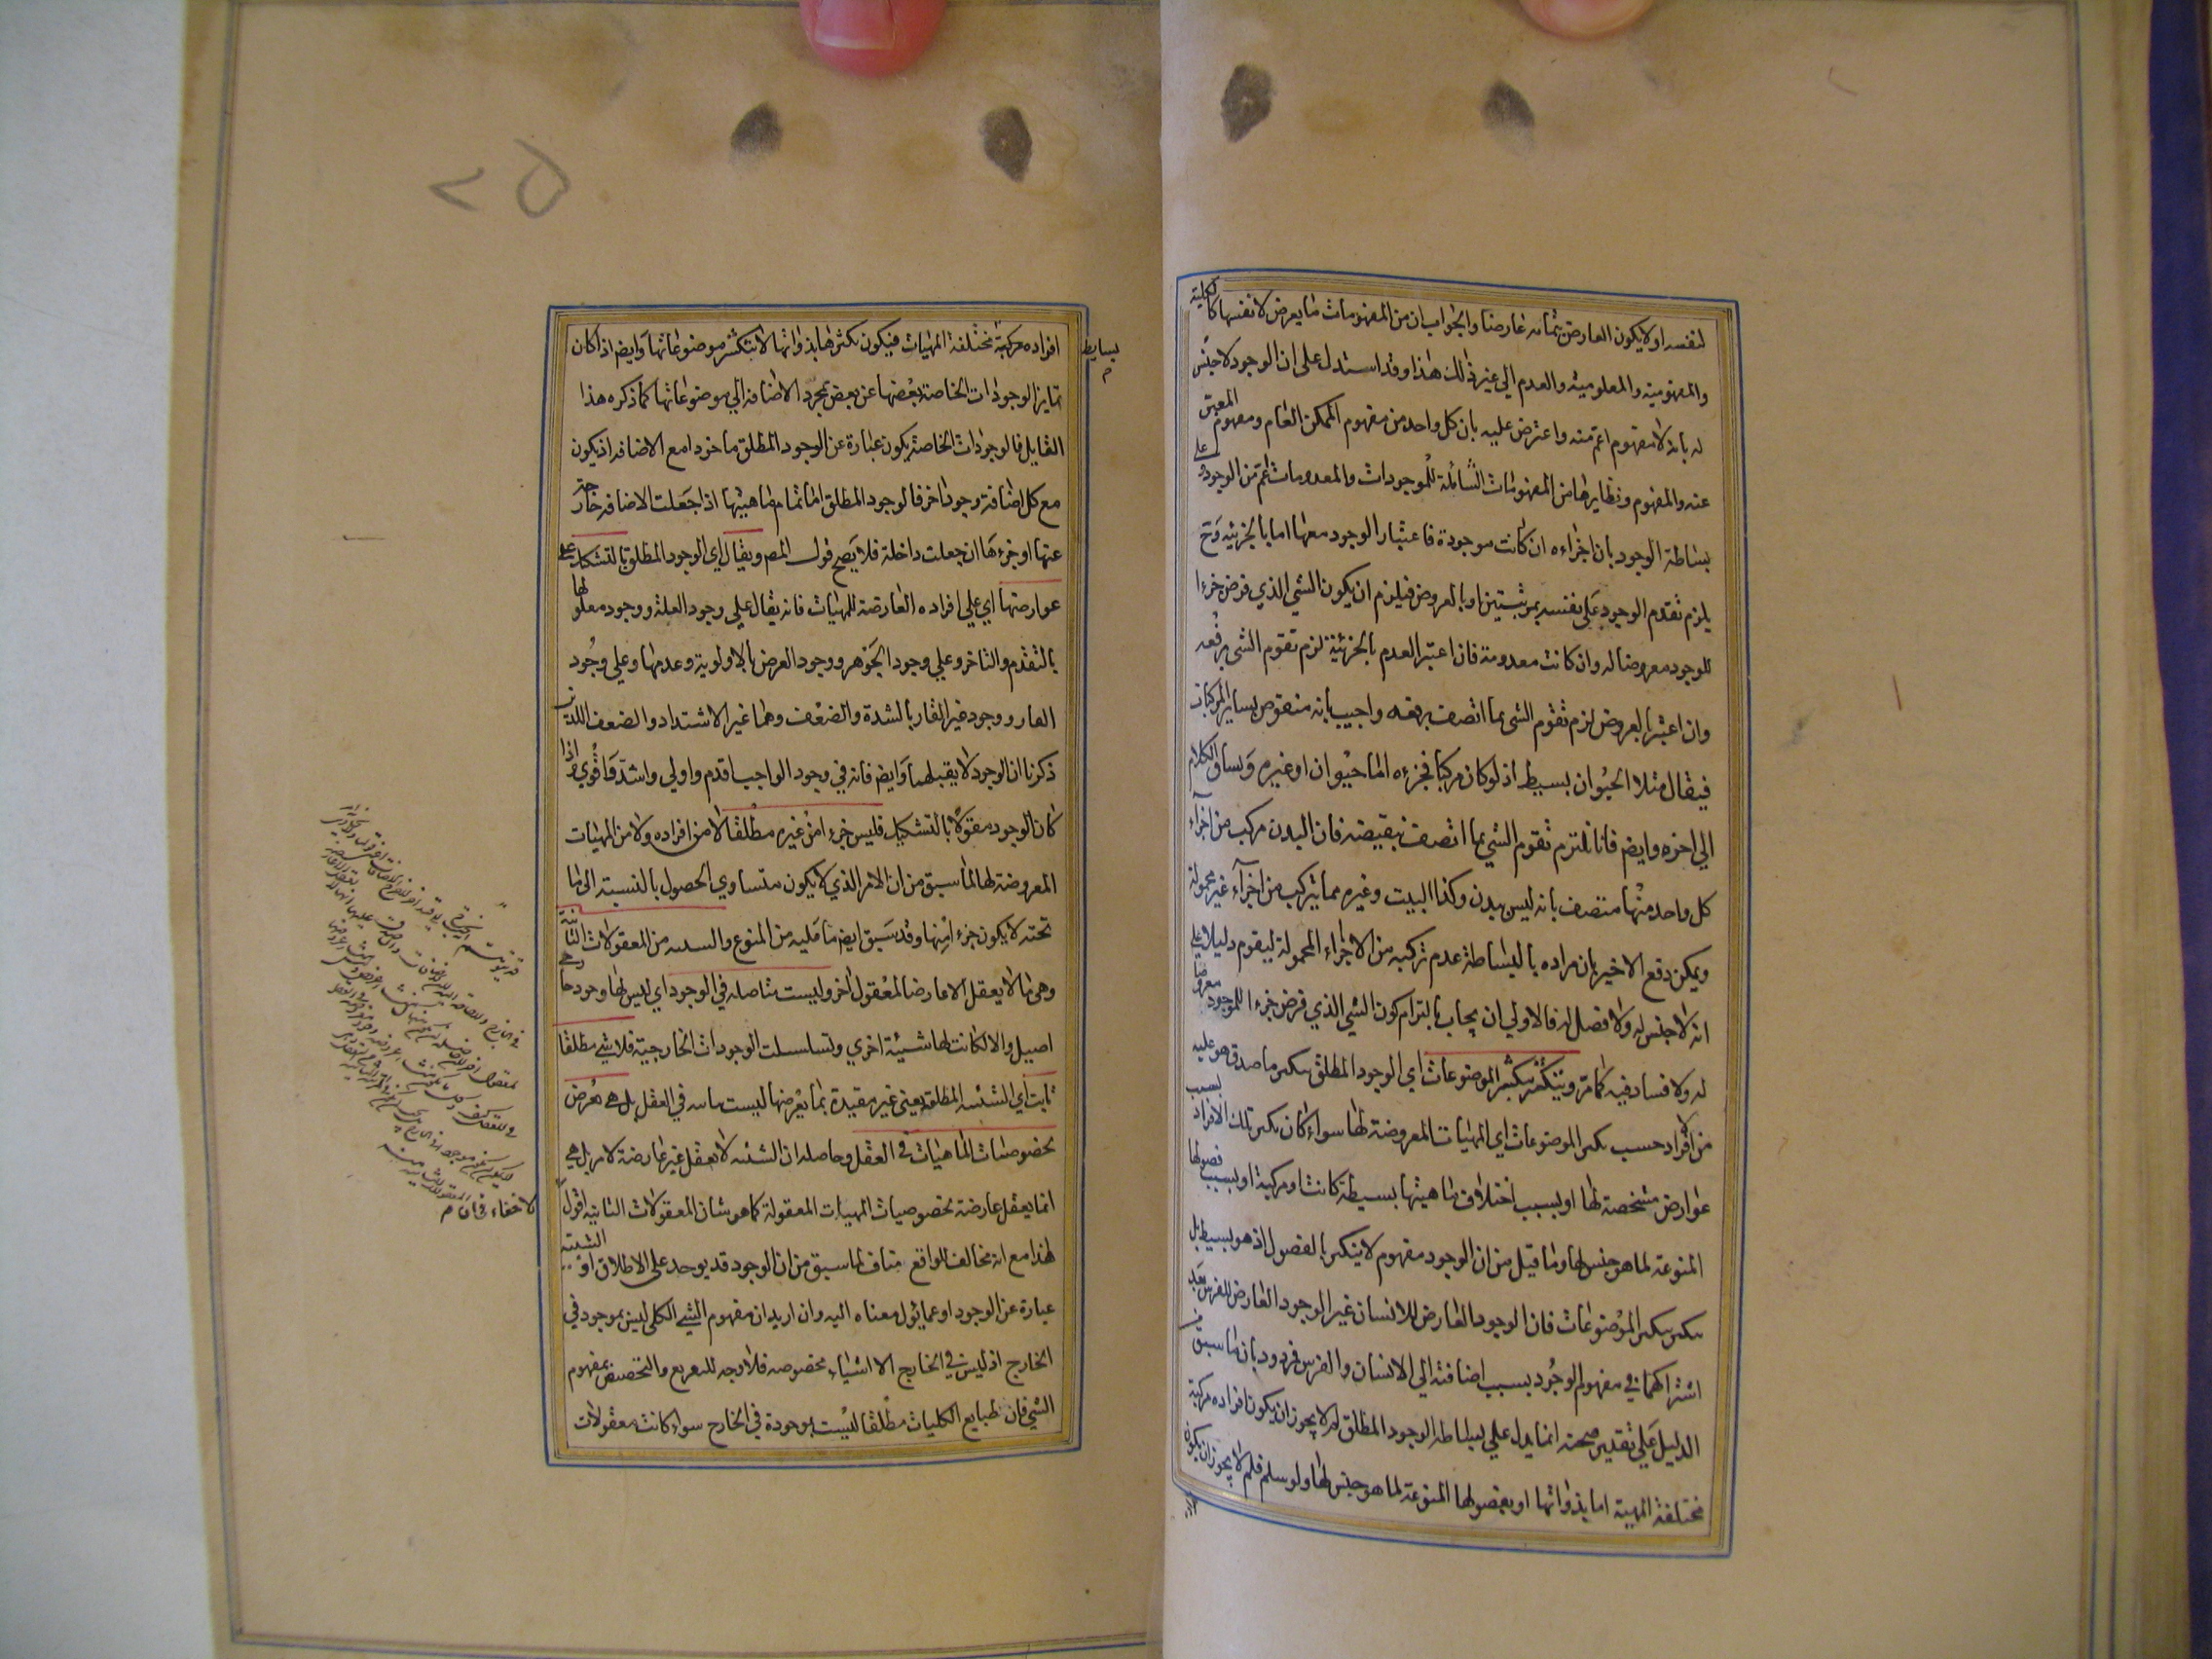 لنفسه او لا يكون العارض بتمامه عارضا والجواب ان من المفهومات ما يعرض لانفسها كالكلية
والمفهومية والمعلومية والعدم الي غير ذلك هذا وقد استدل علي ان الوجود لا جنس
له بانه لا مفهوم اعم منه واعترض عليه بان كل واحد من مفهوم الممكن العام ومفهوم المعبر
عنه والمفهوم ونظايرها من المفهومات الشاملة للموجودات والمعدومات اعم من الوجود و علي
بساطة الوجود بان اجزاءه ان كانت موجودة فاعتبار الوجود معها اما بالجزئية وح
يلزم تقدم الوجود علي نفسه بمرتبتين او بالعروض فيلزم ان يكون الشي الذي فرض جزءا
للوجود معروضا له وان كانت معدومة فان اعتبر العدم بالجزئية لزم تقوم الشي برفعه
وان اعتبر بالعروض لزم تقوم الشي بما اتصف برفعه واجيب بانه منقوض بساير المركبات
فيقال مثلا الحيوان بسيط اذ لو كان مركبا فجزءه اما حيوان او غيره ويساق الكلام
الي اخره وايض فانا نلتزم تقوم الشي بما اتصف بنقيضه فان البدن مركب من اجزآء
كل واحد منها متصف بانه ليس ببدن وكذا البيت وغيره مما يتركب من اجزآء غير محمولة
ويمكن دفع الاخير بان مراده بالبساطة عدم تركبه من الاجزاء المحمولة ليقوم دليلا علي
انه لا جنس له ولا فصل له فالاولي ان يجاب بالتزام كون الشي الذي فرض جزءا للموجود معروضا
له ولا فساد فيه كما مر ويتكثر بتكثر الموضوعات اي الوجود المطلق يتكثر ما صدق هو عليه
من افراد حسب تكثر الموضوعات اي المهيات المعروضة لها سواء كان تكثر تلك الافراد بسبب
عوارض مشخصة لها او بسبب اختلاف ماهيتها بسيطة كانت او مركبة او بسبب فصولها
المنوعة لما هو جنس لها وما قيل من ان الوجود مفهوم لا يتكثر بالفصول اذ هو بسيط بل
يتكثر بتكثر الموضوعات فان الوجود العارض للانسان غير الوجود العارض للفرس بعد
اشتراكهما في مفهوم الوجود بسبب اضافته الي الانسان والفرس فمردود بان ما سبق من
الدليل علي تقدير صحته انما يدل علي بساطة الوجود المطلق لم لا يجوز ان يكون افراده مركبة
مختلفة المهية اما بذواتها او بفصولها المنوعة لما هو جنس لها ولو سلم فلم لا يجوز ان يكون
افراده مركبة مختلفة المهيات فيكون تكثرها بذواتها لا بتكثر موضوعاتها وايض اذا كان
بسايط
تمايز الوجودات الخاصة بعضها عن بعض بمجرد الاضافة الي موضوعاتها كما ذكره هذا
القايل فالوجودات الخاصة يكون عبارة عن الوجود المطلق ماخوذا مع الاضافه اذ يكون
مع كل اضافة وجودا اخر فالوجود المطلق اما تمام ماهيتها اذا جعلت الاضافه خارجة
عنها او جزءها ان جعلت داخلة فلا يصح قول المص ويقال اي الوجود المطلق بالتشكيك علي
عوارضها اي علي افراده العارضة للمهيات فانه يقال علي وجود العلة ووجود معلولها
بالتقدم والتاخر وعلي وجود الجوهر ووجود العرض بالاولوية وعدمها وعلي وجود
القار ووجود غير القار بالشدة والضعف وهما غير الاشتداد والضعف اللذين
ذكرنا ان الوجود لا يقبلهما وايض فانه في وجود الواجب اقدم واولي واشد واقوي واذا
كان الوجود مقولا بالتشكيك فليس جزءا من غيره مطلقا لا من افراده ولا من المهيات
المعروضة لها لما سبق من ان الامر الذي لا يكون متساوي الحصول بالنسبة الي ما
تحته لا يكون جزءا منها وقد سبق ايض ما عليه من المنوع والشيئية من المعقولات الثانية
وهي ما لا يعقل الا عارضا لمعقول اخر وليست متاصلة في الوجود اي ليس لها وجود خارجي
اصيل والا لكانت لها شيئية اخري وتسلسلت الوجودات الخارجية فلا شيء مطلقا
ثابت اي الشيئية المطلقة يعني غير مقيدة بما يعرضها ليست ثابتة في العقل بل هي تعرض
بخصوصيات الماهيات في العقل وحاصله ان الشيئية لا تعقل غير عارضة لامر بل هي
انما يعقل عارضة بخصوصيات المهيات المعقولة كما هو شان المعقولات الثانية اقول
هذا مع انه مخالف للواقع مناف لما سبق من ان الوجود قد يوخذ علي الاطلاق او الشيئية
عبارة عن الوجود او عما يئول معناه اليه وان اريد ان مفهوم الشيء الكلي ليس بموجود في
الخارج اذ ليس في الخارج الا اشياء مخصوصة فلا وجه للتفريع والتخصيص بمفهوم
الشي فان طبايع الكليات مطلقا ليست بموجودة في الخارج سواء كانت معقولات